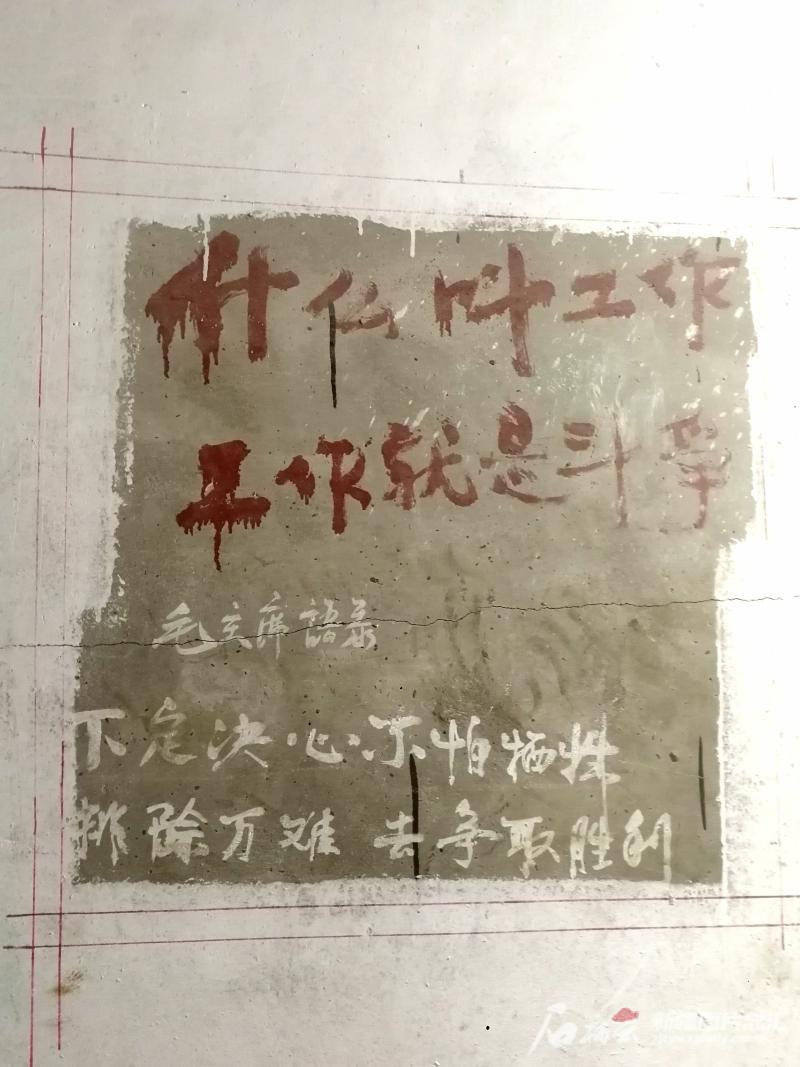 什么叫工作
工作就是斗争
毛主席語录
下定决心 不怕牺牲
排除万难 去争取胜利
石榴云